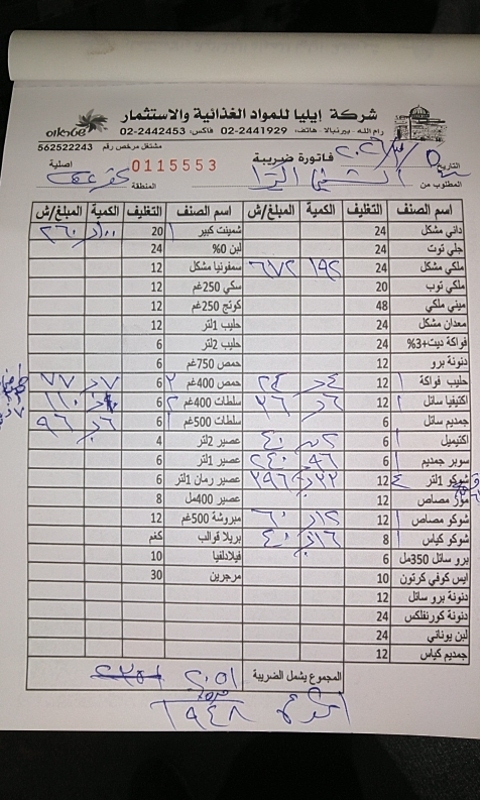 شركة إيليا للمواد الغذائية والاستثمار
شتراوس
رام الله - بيرنبالا - هاتف: 02-2441929 فاكس: 02-2442453
مشتغل مرخص رقم 562522243
التاريخ فاتورة ضريبة 0115553 أصلية
المطلوب من المنطقة
اسم الصنف التغليف الكمية المبلغ/ش اسم الصنف التغليف الكمية المبلغ/ش
داني مشكل 24 شمينت كبير 20 ٢٦٠
جلي توت 24 لبن 0% 24
ملكي مشكل 24 ١٩٢ ٦٧٢ سمفونيا مشكل 12
ملكي توب 20 سكي 250غم 12
ميني ملكي 48 كوتج 250غم 12
معدان مشكل 24 حليب 1لتر 12
فواكة ديت+3% 24 حليب 2لتر 6
دنونة برو 12 حمص 750غم 6
حليب فواكة 12 ٢٤ حمص 400غم 6 ٧٧
اكتيفيا سائل 12 ٣٦ سلطات 400غم 6 ١١٠
جمديم سائل 6 سلطات 500غم 6 ٩٦
اكتيميل 6 ٤٠ عصير 2لتر 4
سوبر جمديم 6 ٩٦ ٢٤٠ عصير 1لتر 6
شوكو 1لتر 12 ٣٩٦ عصير رمان 1لتر 6
موز مصاص 12 عصير 400مل 8
شوكو مصاص 12 ٦٠ مبروشة 500غم 12
شوكو كياس 8 ٤٠ بريلا قوالب كغم
برو سائل 350مل 6 فيلادلفيا 10
ايس كوفي كرتون 10 مرجرين 30
دنونة برو سائل 12
دنونة كورنفلكس 24
لبن يوناني 24
جمديم كياس 12
المجموع يشمل الضريبة ٢٠٥١
١٩٤٨